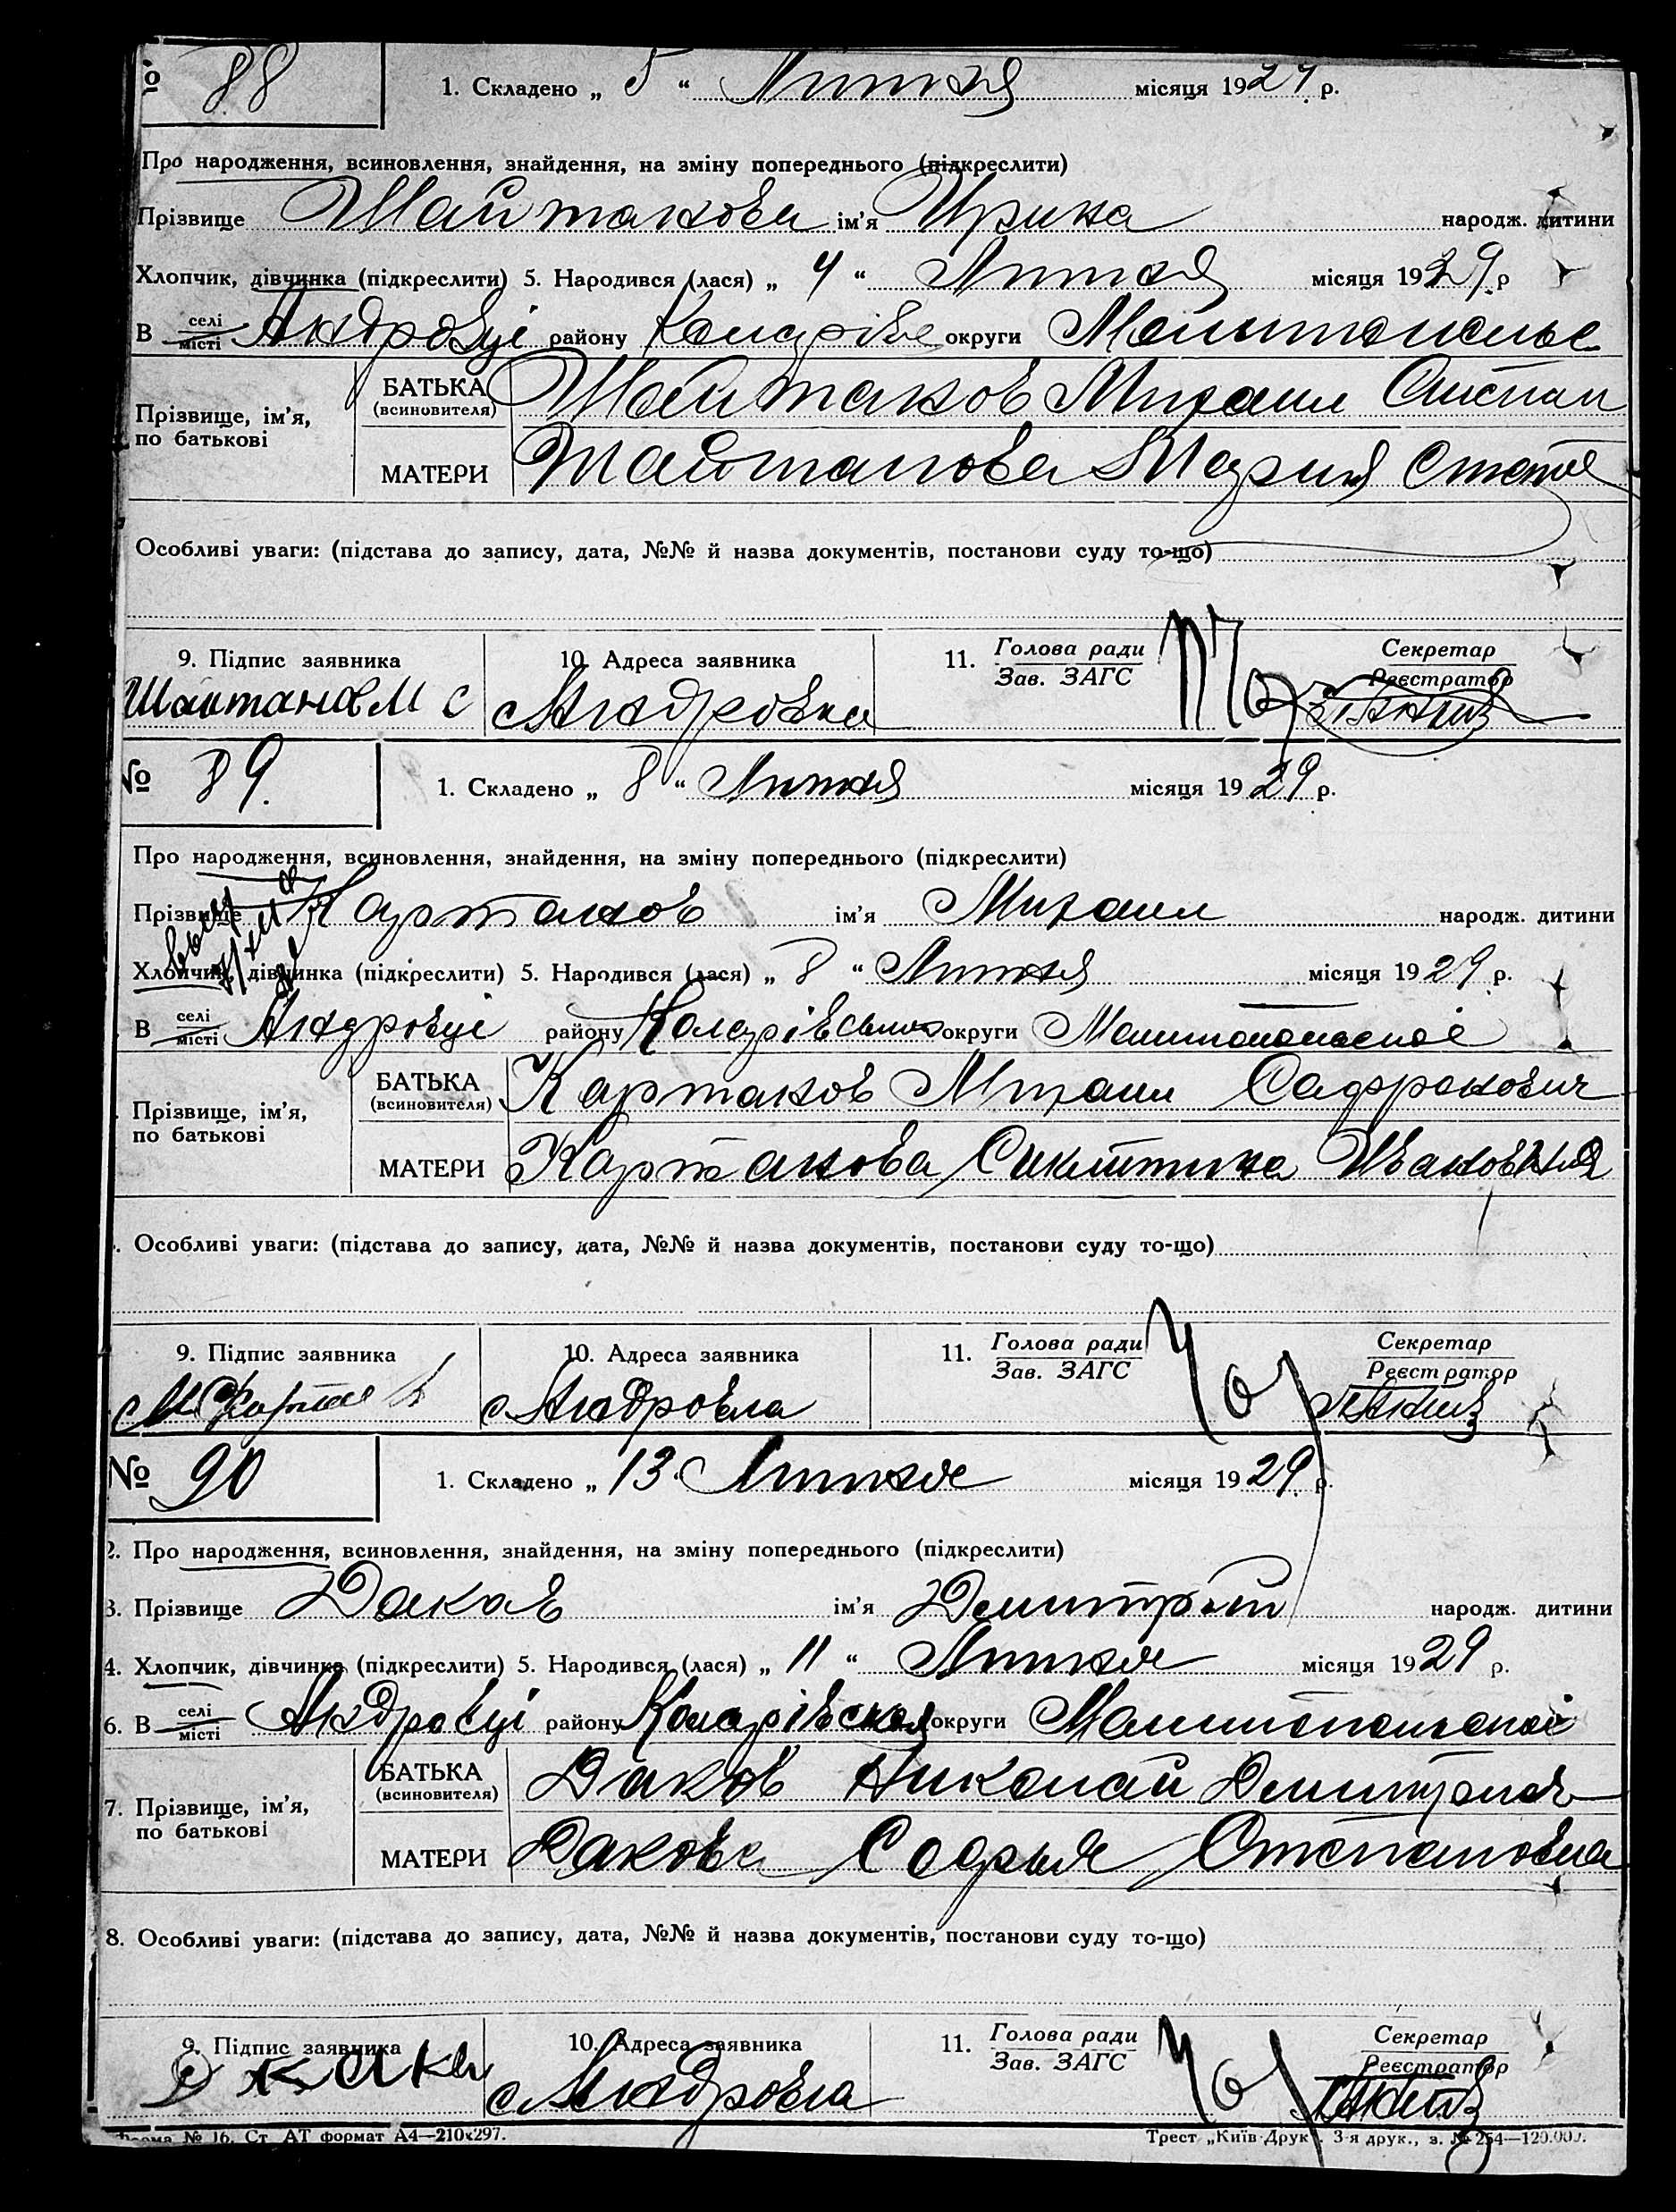 № 88 1. Складено „ 5 “ Липня місяця 1929 р.
Про народження, всиновлення, знайдення, на зміну попереднього (підкреслити)
Прізвище Шайтанова ім’я Ирина народж. дитини
Хлопчик, дівчинка (підкреслити) 5. Народився (лася) „ 4 “ Липня місяця 1929 р
В селі/місті Андровці району округи
Прізвище, ім’я, по батькові БАТЬКА (всиновителя) Шайтанов Михаил
МАТЕРИ Шайтанова Мария
Особливі уваги: (підстава до запису, дата, №№ й назва документів, постанови суду то-що)
9. Підпис заявника 10. Адреса заявника 11. Голова ради Секретар
Зав. ЗАГС Реєстратор
Шайтанов М с с Андровка
№ 89. 1. Складено „ 8 “ Липня місяця 1929 р.
Про народження, всиновлення, знайдення, на зміну попереднього (підкреслити)
Прізвище Картанов ім’я Михаил народж. дитини
Хлопчик, дівчинка (підкреслити) 5. Народився (лася) „ 8 “ Липня місяця 1929 р.
В селі/місті Андровці району Коларівськ округи Мелитопольської
Прізвище, ім’я, по батькові БАТЬКА (всиновителя) Картанов Михаил Сафронович
МАТЕРИ Картанова Ивановна
Особливі уваги: (підстава до запису, дата, №№ й назва документів, постанови суду то-що)
9. Підпис заявника 10. Адреса заявника 11. Голова ради Секретар
Зав. ЗАГС Реєстратор
с Андровка
№ 90 1. Складено „ 13 Липня місяця 1929 р.
2. Про народження, всиновлення, знайдення, на зміну попереднього (підкреслити)
3. Прізвище Даков ім’я Дмитрий народж. дитини
4. Хлопчик, дівчинка (підкреслити) 5. Народився (лася) „ 11 “ Липня місяця 1929 р.
6. В селі/місті Андровці району Коларівськоя округи Мелитопольської
7. Прізвище, ім’я, по батькові БАТЬКА (всиновителя) Даков Николай Дмитрович
МАТЕРИ Дакова Софья Степановна
8. Особливі уваги: (підстава до запису, дата, №№ й назва документів, постанови суду то-що)
9. Підпис заявника 10. Адреса заявника 11. Голова ради Секретар
Зав. ЗАГС Реєстратор
с Андровка
Форма № 16. Ст. АТ формат А4—210x297. Трест „Київ-Друк“. 3-я друк., з. № 254—120.000.